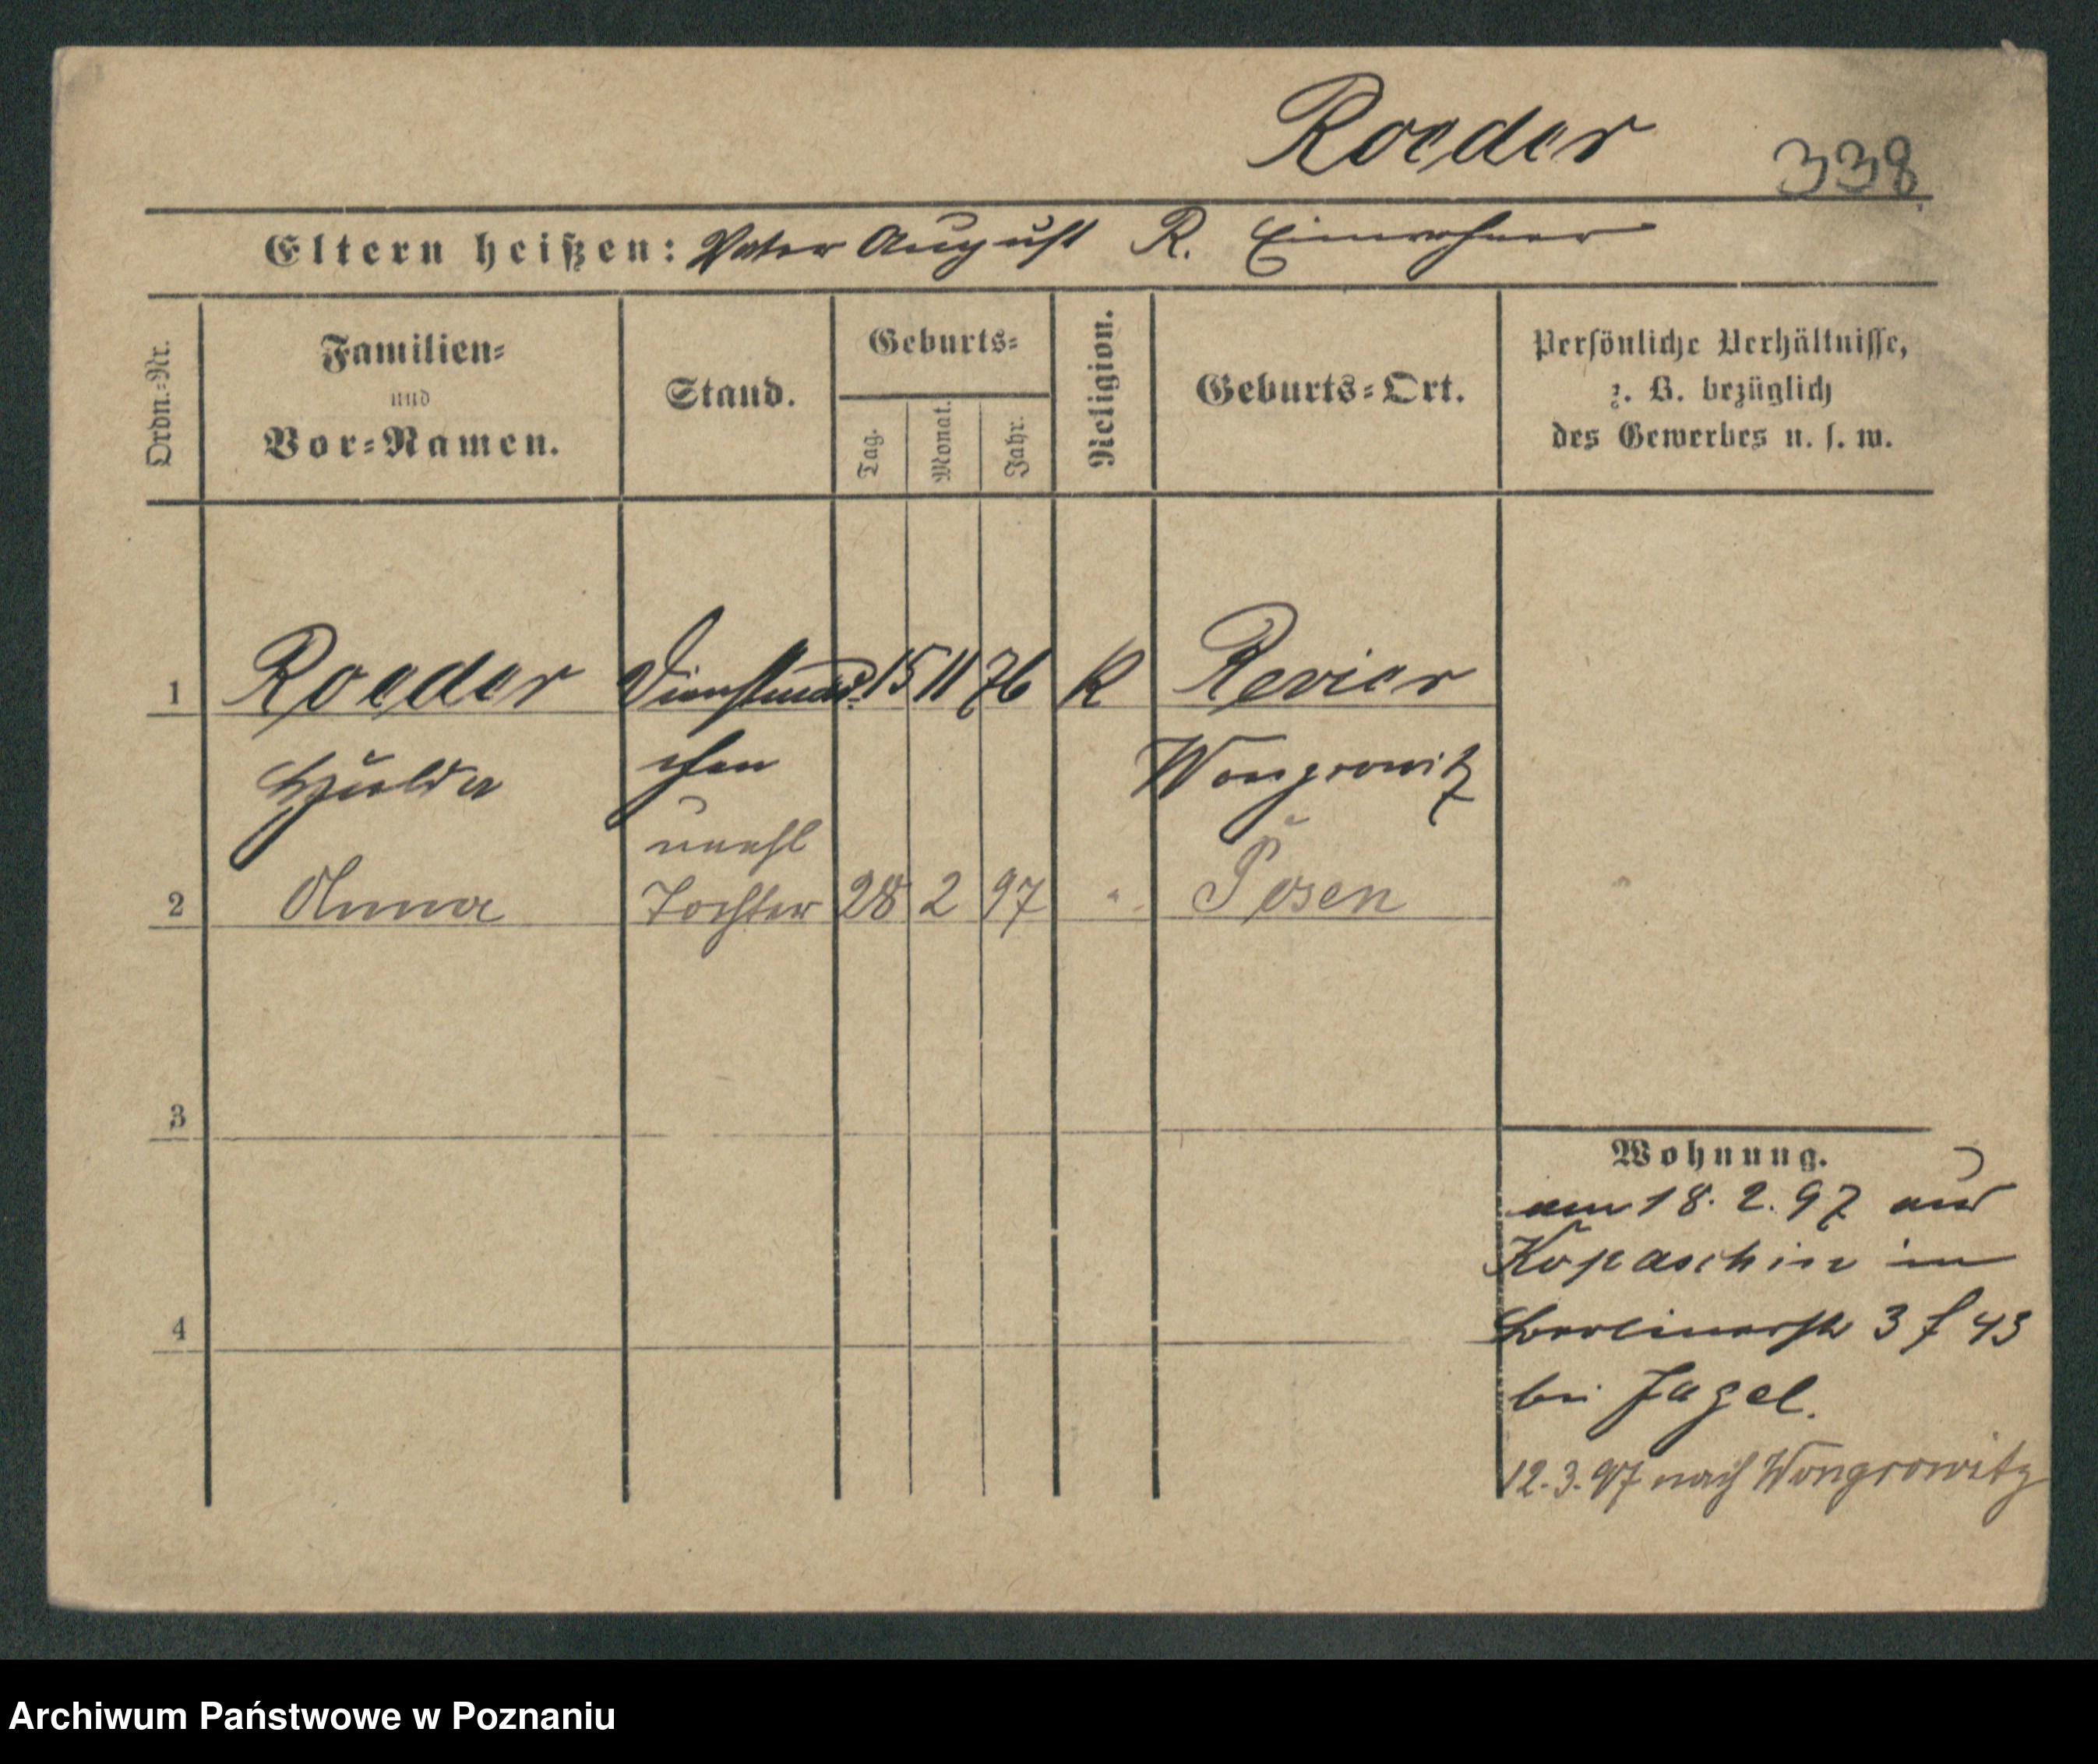 Roeder 338
Eltern heißen: Vater August R. Einwohner
Ordn.-Nr.
Familien-
und
Vor-Namen.
Stand.
Geburts-
Tag.
Monat.
Jahr.
Religion.
Geburts-Ort.
Persönliche Verhältnisse,
z. B. bezüglich
des Gewerbes u. s. w.
1 Roeder Dienstmäd- 15 11 76 K Revier
Hulda chen Wongrowitz
unehl
2 Anna Tochter 28 2 97 " Posen
3
Wohnung.
am 18. 2. 97 aus
Kopaschin in
4
Berlinerstr 3 f 43
bei Jagel.
12.3.97 nach Wongrowitz
Archiwum Państwowe w Poznaniu